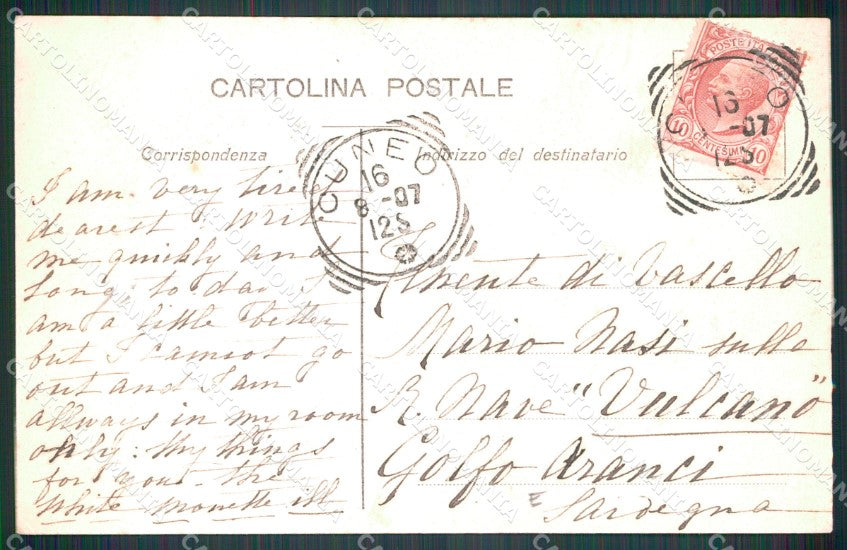 CARTOLINA POSTALE
Corrispondenza
Indirizzo del destinatario
POSTE ITALIANE
10 CENTESIMI 10
CUNEO
16
8 -07
12S
CUNEO
16
-07
12S
I am very tired
dearest Write
me quickly and
long; to day I
am a little better
but I cannot go
out and I am
allways in my room
only: thy things
for you the
White
ill
Tenente di Vascello
Mario Nasi sulla
R. Nave "Vulcano"
Golfo Aranci
Sardegna
CARTOLINOMANIA